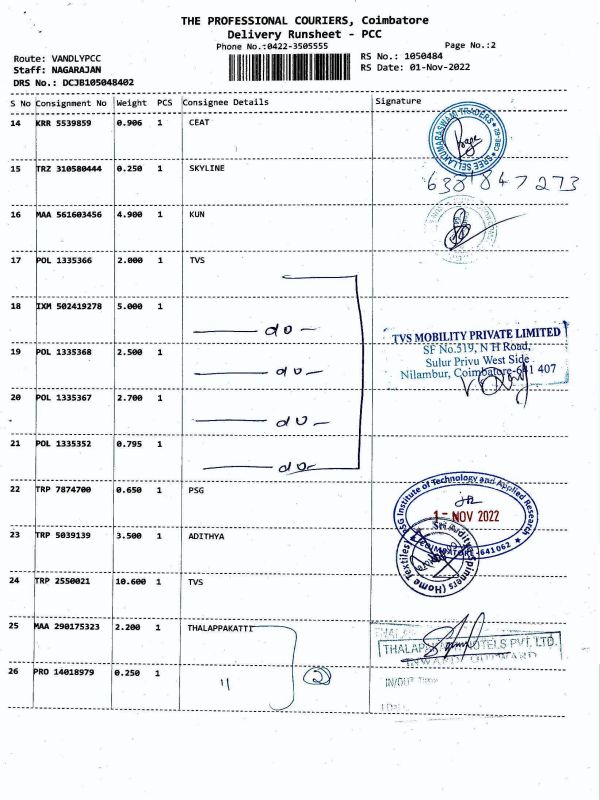 THE PROFESSIONAL COURIERS, Coimbatore
Delivery Runsheet - PCC
Phone No.:0422-3505555
Page No.:2
Route: VANDLYPCC
RS No.: 1050484
Staff: NAGARAJAN
RS Date: 01-Nov-2022
DRS No.: DCJB105048402
S No Consignment No Weight PCS Consignee Details Signature
14 KRR 5539859 0.906 1 CEAT
SREE SELLAKUMARASWAMI TRADERS
15 TRZ 310580444 0.250 1 SKYLINE
16 MAA 561603456 4.900 1 KUN
17 POL 1335366 2.000 1 TVS
18 IXM 502419278 5.000 1
do
TVS MOBILITY PRIVATE LIMITED
SF No.519, N H Road,
19 POL 1335368 2.500 1
Sulur Privu West Side
do
Nilambur, Coimbatore-641 407
20 POL 1335367 2.700 1
do
21 POL 1335352 0.795 1
do
22 TRP 7874700 0.650 1 PSG
PSG Institute of Technology and Applied Research
1 - NOV 2022
COIMBATORE-641062
23 TRP 5039139 3.500 1 ADITHYA
Spinners (Home Textiles)
24 TRP 2550021 10.600 1 TVS
25 MAA 290175323 2.200 1 THALAPPAKATTI
THALAPPAKATTI HOTELS PVT. LTD.
INWARD/OUTWARD
26 PRO 14018979 0.250 1 "
2
IN/OUT TIME